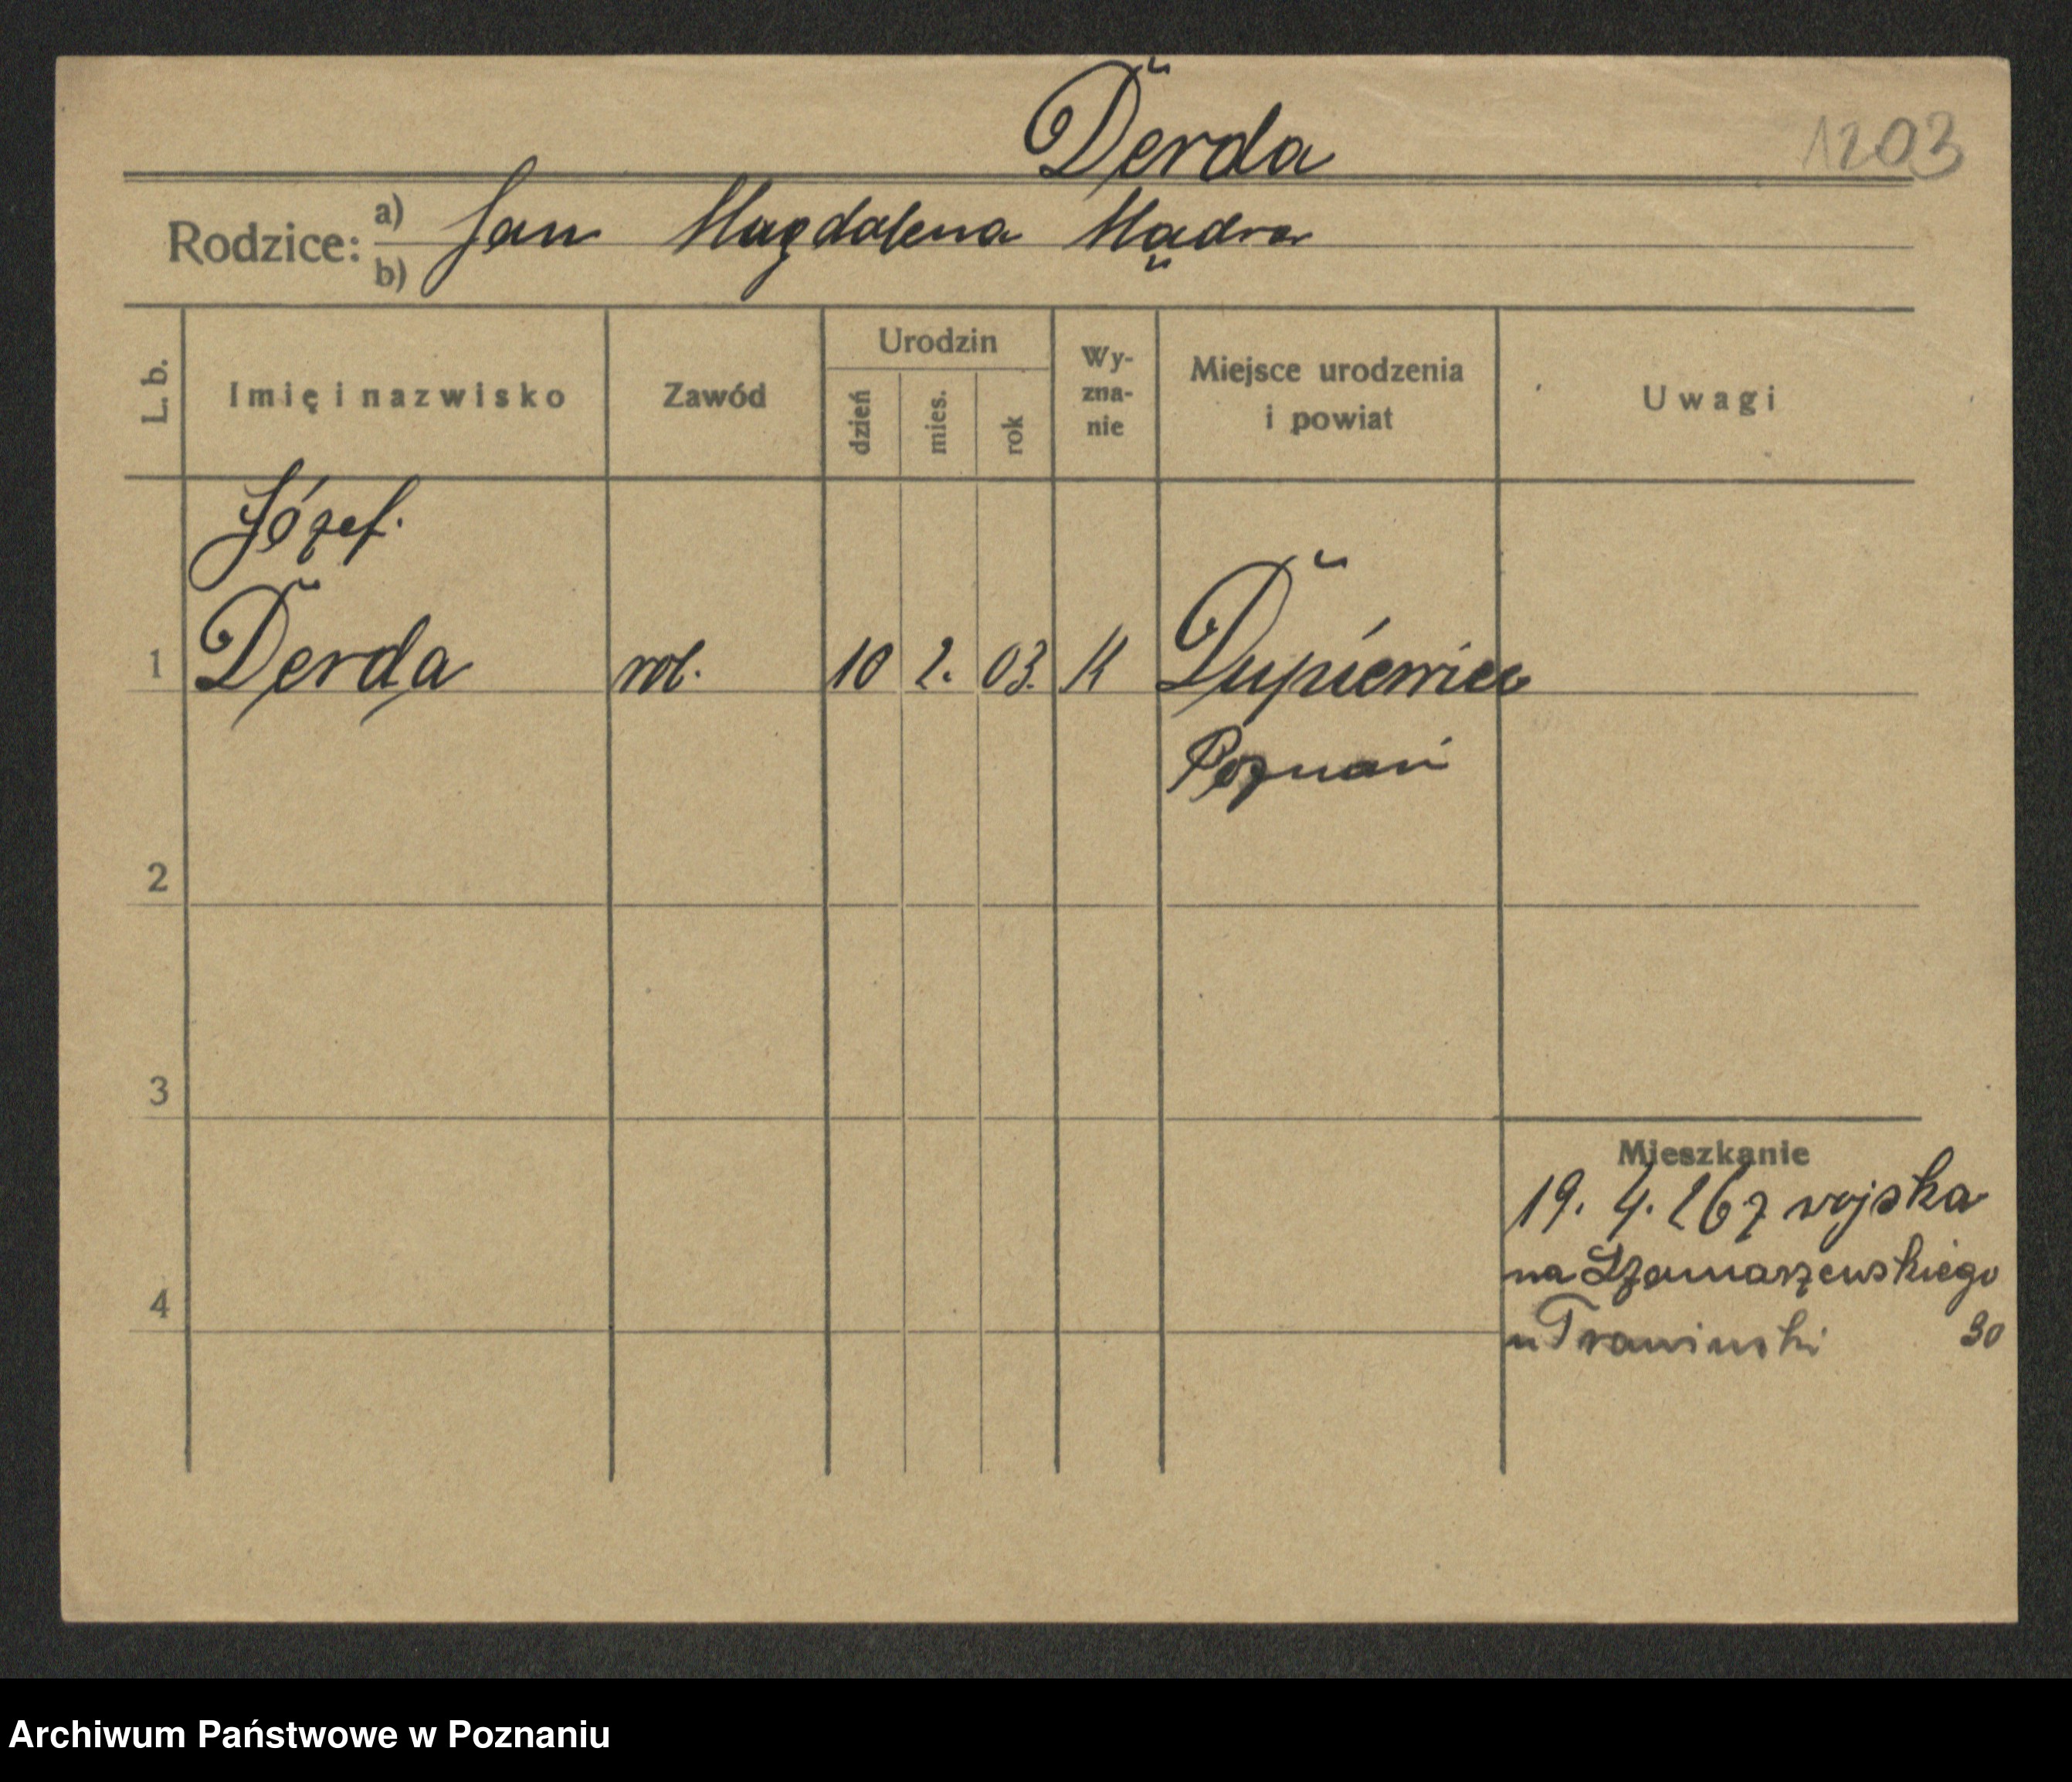 Derda
1203
Rodzice: a) b) Jan Magdalena Mądra
L. b.
Imię i nazwisko
Zawód
Urodzin
dzień
mies.
rok
Wy-
zna-
nie
Miejsce urodzenia
i powiat
Uwagi
Józef.
1 Derda rob. 10 2. 03. K Dupiewiec
Poznań
2
3
4
Mieszkanie
19. 4. 26 z wojska
na Szamarzewskiego
u Trawinski 30
Archiwum Państwowe w Poznaniu